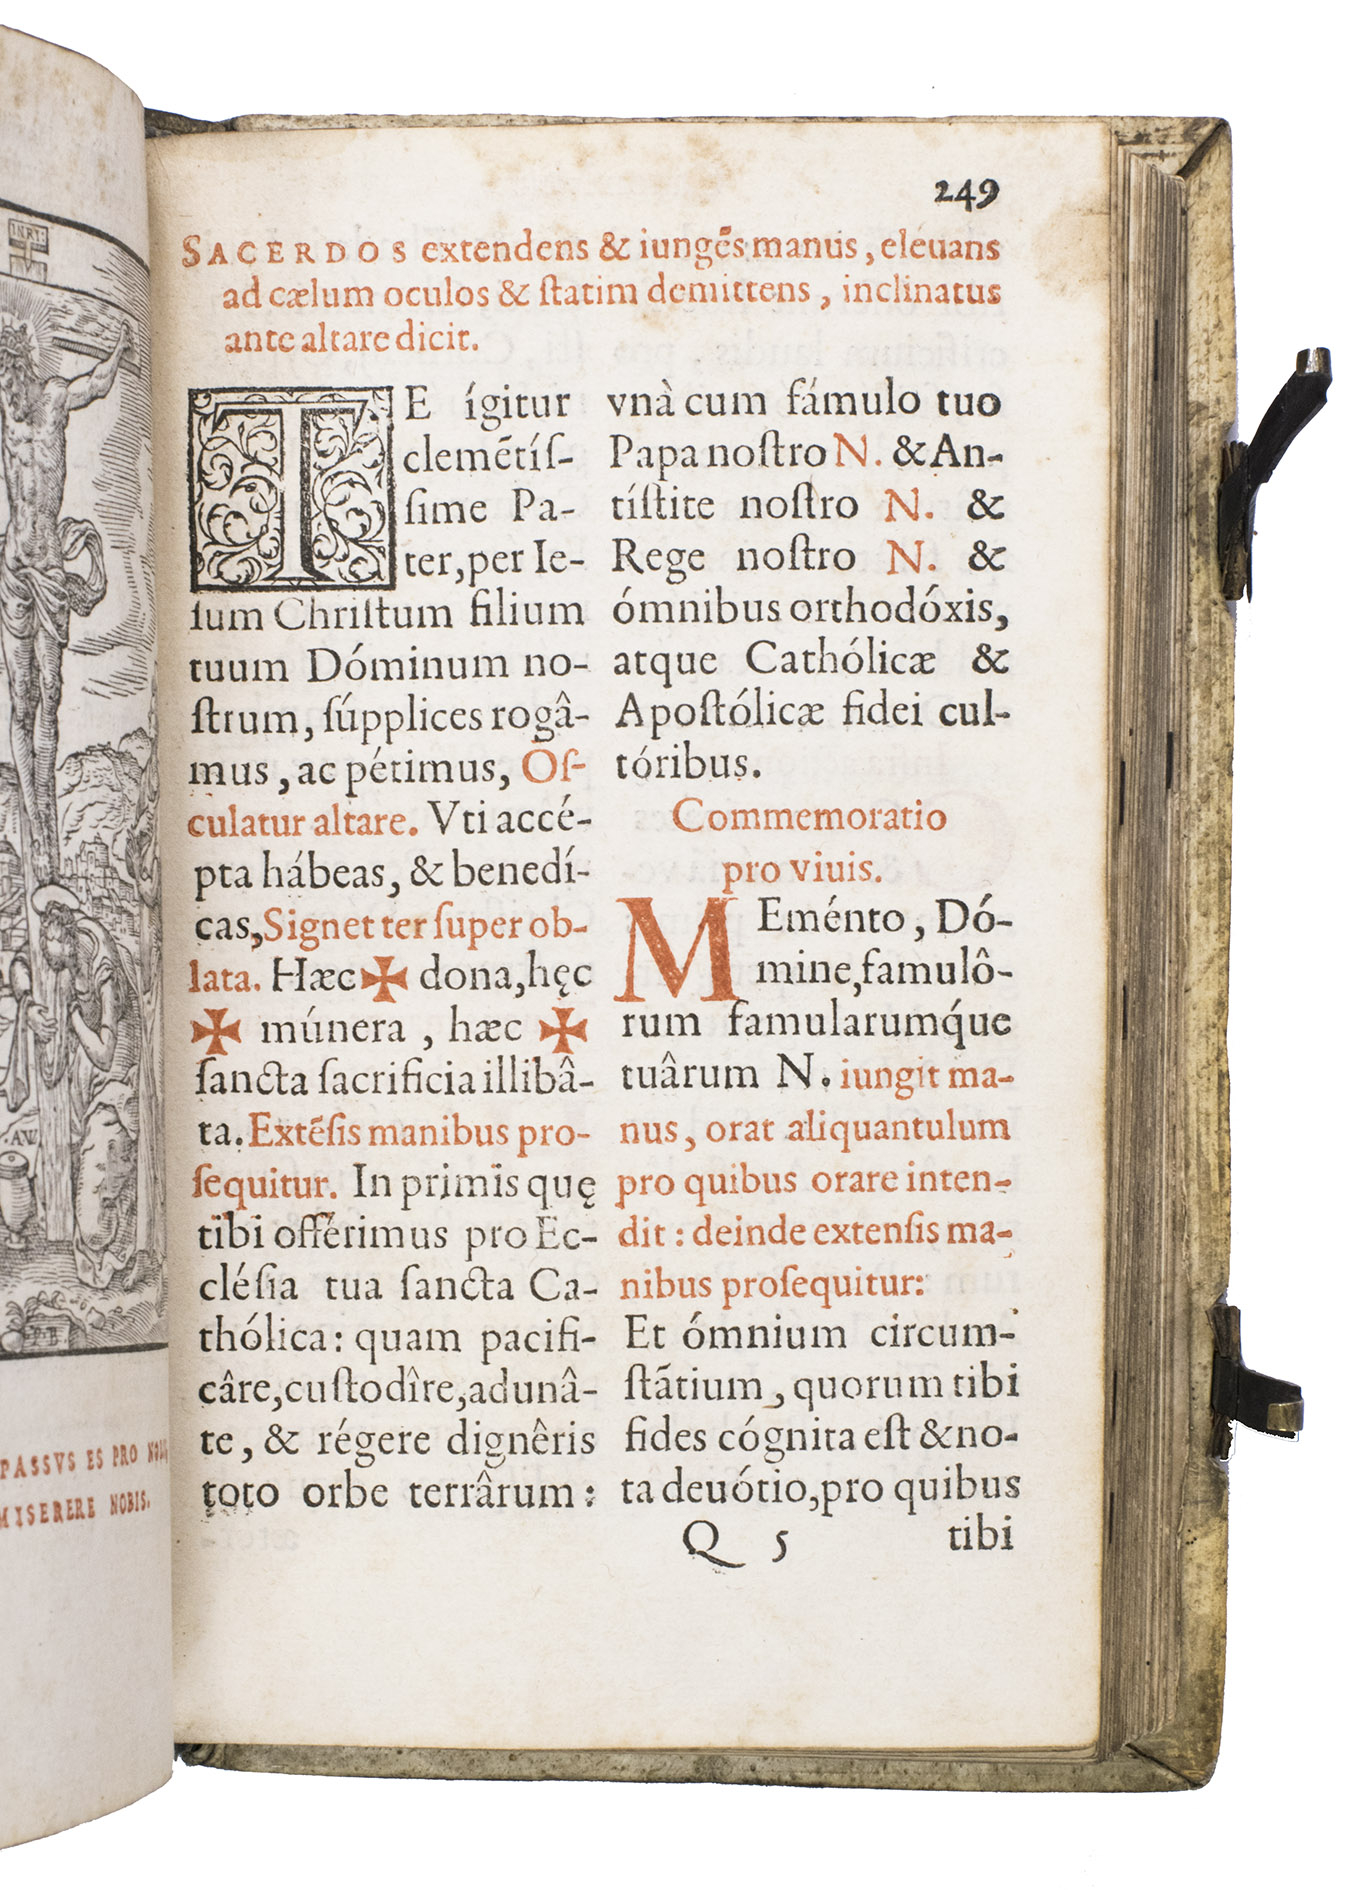 INRI
.AW.
PASSVS ES PRO NOBI
MISERERE NOBIS.
249
SACERDOS extendens & iungẽs manus, eleuans
ad cælum oculos & ſtatim demittens, inclinatus
ante altare dicit.
TE ígitur
clemẽtíſ-
ſime Pa-
ter, per Ie-
ſum Chriſtum filium
tuum Dóminum no-
ſtrum, ſúpplices rogâ-
mus, ac pétimus, Oſ-
culatur altare. Vti accé-
pta hábeas, & benedí-
cas, Signet ter ſuper ob-
lata. Hæc ✠ dona, hęc
✠ múnera, hæc ✠
ſancta ſacrificia illibâ-
ta. Extẽſis manibus pro-
ſequitur. In primis quę
tibi offérimus pro Ec-
cléſia tua ſancta Ca-
thólica: quam pacifi-
câre, cuſtodîre, adunâ-
te, & régere dignêris
toto orbe terrârum:
vnà cum fámulo tuo
Papa noſtro N. & An-
tíſtite noſtro N. &
Rege noſtro N. &
ómnibus orthodóxis,
atque Cathólicæ &
Apoſtólicæ fidei cul-
tóribus.
Commemoratio
pro viuis.
MEménto, Dó-
mine, famulô-
rum famularumq́ue
tuârum N. iungit ma-
nus, orat aliquantulum
pro quibus orare inten-
dit: deinde extenſis ma-
nibus proſequitur:
Et ómnium circum-
ſtãtium, quorum tibi
fides cógnita eſt & no-
ta deuótio, pro quibus
Q 5 tibi